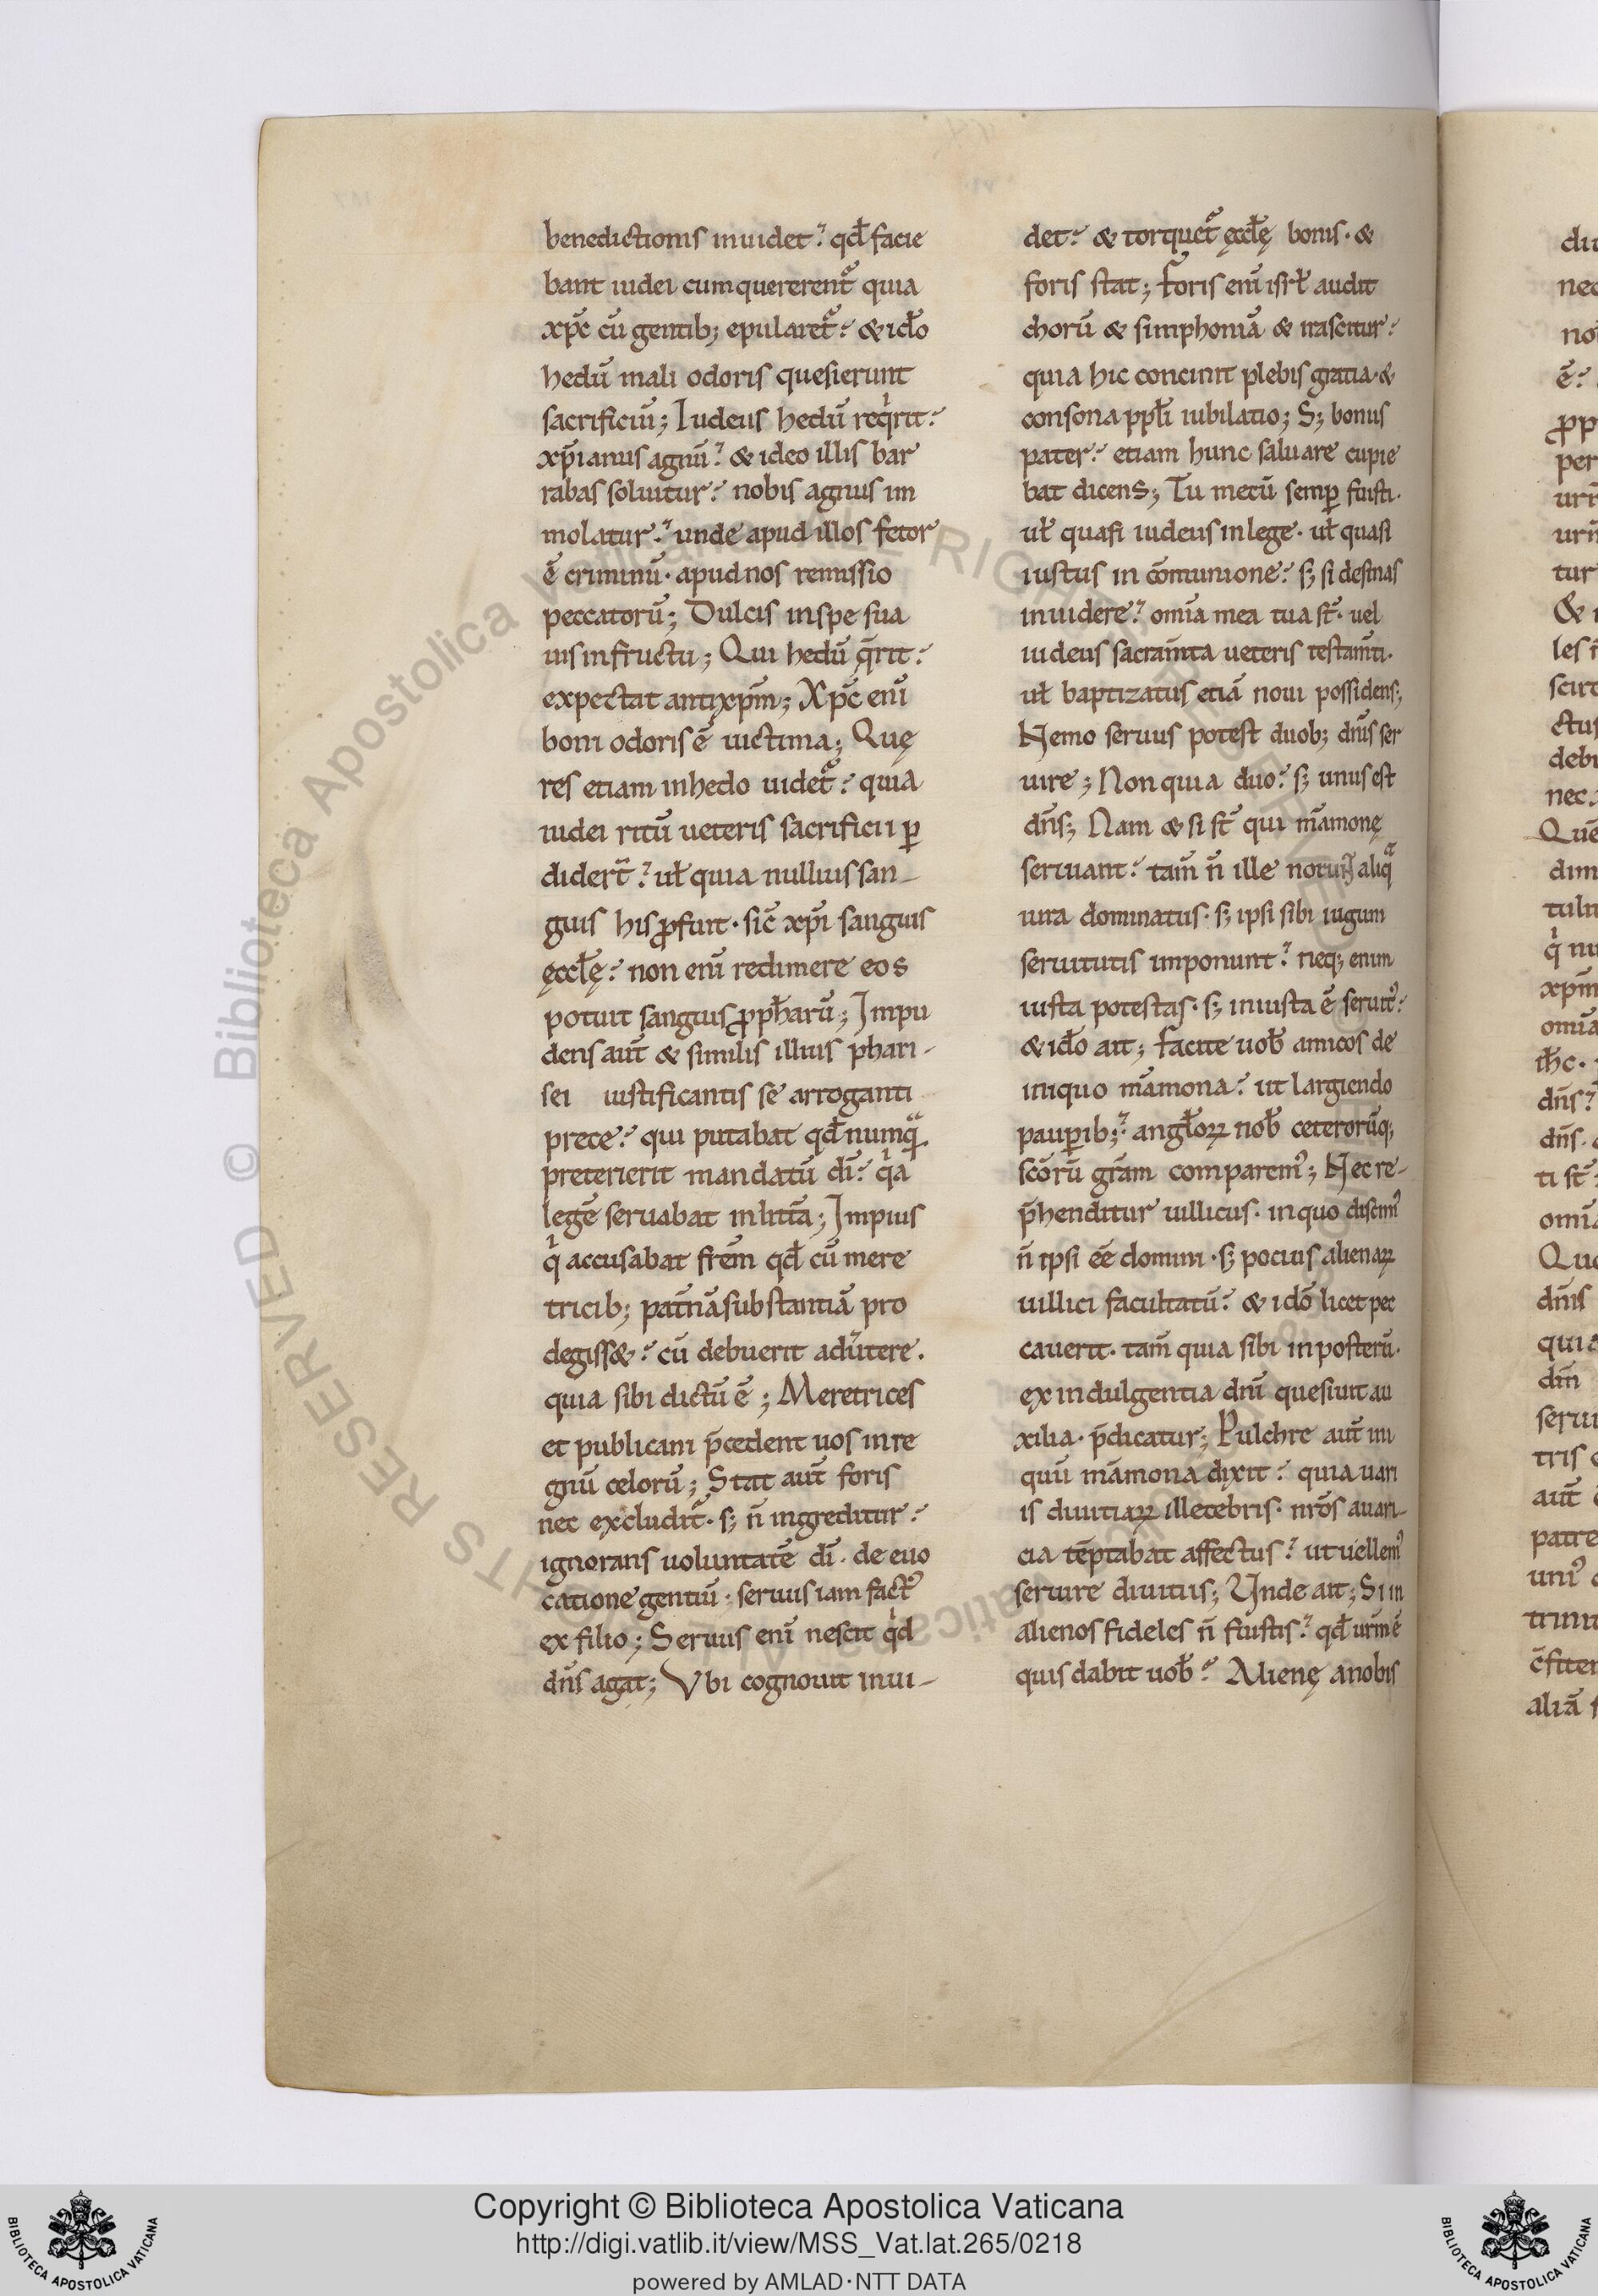 benedictionis inuidet? qd̄ facie
bant iudei cum quererent̄ quia
xp̄c cū gentib; epularet̄? & id̄o
hedū mali odoris quesierunt
sacrificiū; Iudeus hedū reqͥrit?
xp̄ianus agnū? & ideo illis bar
rabas soluitur? nobis agnus im
molatur? unde apud illos fetor
ē criminū· apud nos remissio
peccatorū; Dulcis in spe sua
uis in fructu; Qui hedū q̄rit?
expectat antixp̄m; Xp̄c enī
boni odoris ē uictima; Quę
res etiam in hedo uidet̄? quia
iudei ritū ueteris sacrificii ꝑ
didert̄? ul̄ quia nullius san-
guis his ꝓfuit· sic̄ xp̄i sanguis
ęccl̄ę? non enī redimere eos
potuit sanguis ꝓph̄arū; Impu
dens aut̄ & similis illius phari-
sei iustificantis se arroganti
prece? qui putabat qd̄ numqᵃ̄
preterierit mandatū dī? qͥa
legē seruabat in litt̄a; Impius
qͥ accusabat frēm qd̄ cū mere
tricib; pat̄nā substantiā pro
degiss&? cū debuerit adūtere.
quia sibi dictū ē; Meretrices
et publicani p̄cedent uos in re
gnū celorū; Stat aut̄ foris
nec excludit̄· s; n̄ ingreditur?
ignorans uoluntatē dī· de euo
catione gentiū· seruus iam fact᾽
ex filio; Seruus enī nescit qͥd
dn̄s agat; Vbi cognouit inui-
det? & torquet̄ ęccl̄ę bonis· &
foris stat; Foris enī isrl̄ audit
chorū & simphoniā & irascitur?
quia hic concinit plebis gratia· &
consona ppl̄i iubilatio; S; bonus
pater? etiam hunc saluare cupie
bat dicens; Tu mecū semꝑ fuisti·
ul̄ quasi iudeus in lege· ul̄ quasi
iustus in cōmunione? s; si desinas
inuidere? omīa mea tua st̄· uel
iudeus sacram̄ta ueteris testam̄ti·
ul̄ baptizatus etiā noui possidens;
Nemo seruus potest duob; dn̄is ser
uire; Non quia duo? s; unus est
dn̄s; Nam & si st̄ qui mām̄onę
seruant? tam̄ n̄ ille aliqᵃ
iura dominatus· s; ipsi sibi iugum
seruitutis imponunt? neq; enim
iusta potestas· s; iniusta ē seruit᾽?
& id̄o ait; Facite uob̄ amicos de
iniquo māmona? ut largiendo
pauꝑib;? angl̄oꝝ nob̄ ceterorūq;
scōrū grām comparem᾽; Nec re-
p̄henditur uillicus· in quo discim᾽
n̄ ipsi eē domini· s; pocius alienaꝝ
uillici facultatū? & idō licet pec
cauerit· tam̄ quia sibi in posterū·
ex indulgentia dn̄i quesiuit au
xilia· p̄dicatur; Pulchre aut̄ ini
quū māmona dixit? quia uari
is diuitiaꝝ illecebris· nr̄os auari-
cia tēptabat affectus? ut uellem᾽
seruire diuitiis; Vnde ait; Si in
alienos fideles n̄ fuistis? qd̄ urm̄ ē
quis dabit uob̄? Alienę a nobis
Copyright © Biblioteca Apostolica Vaticana
http://digi.vatlib.it/view/MSS_Vat.lat.265/0218
powered by AMLAD·NTT DATA
BIBLIOTECA APOSTOLICA VATICANA
BIBLIOTECA APOSTOLICA VATICANA